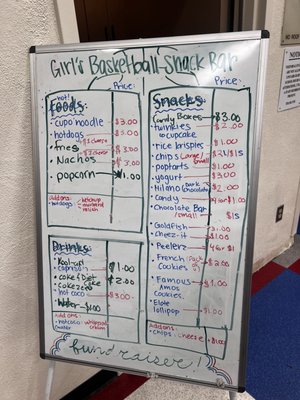 Girl's Basketball Snack Bar
Price:
Price:
hot!
foods
cupo noodle $3.00
hotdogs $3.00
fries
Nachos $3.00
popcorn $1.00
addons:
hotdogs: ketchup
mustard
relish
Snacks
Candy Boxes $3.00
twinkies $2.00
cupcake
rice krispies $1.00
chips Large/small
poptarts $1.00
yogurt $3.00
Dark chocolate
Candy
Chocolate Bar
/small $1
Goldfish $1.00
cheez-it $1.00
Peelerz
French Pack Cookies $2.00
Famous Amos Cookies $1.00
Elote lollipop $1.00
Addons:
chips: cheese $1.00
Drinks
Kool-aid
caprisun $1.00
coke & Diet coke $2.00
coke zero
hot coco $3.00
Water $1.00
add ons:
hotcoco: whipped cream
fundraiser!